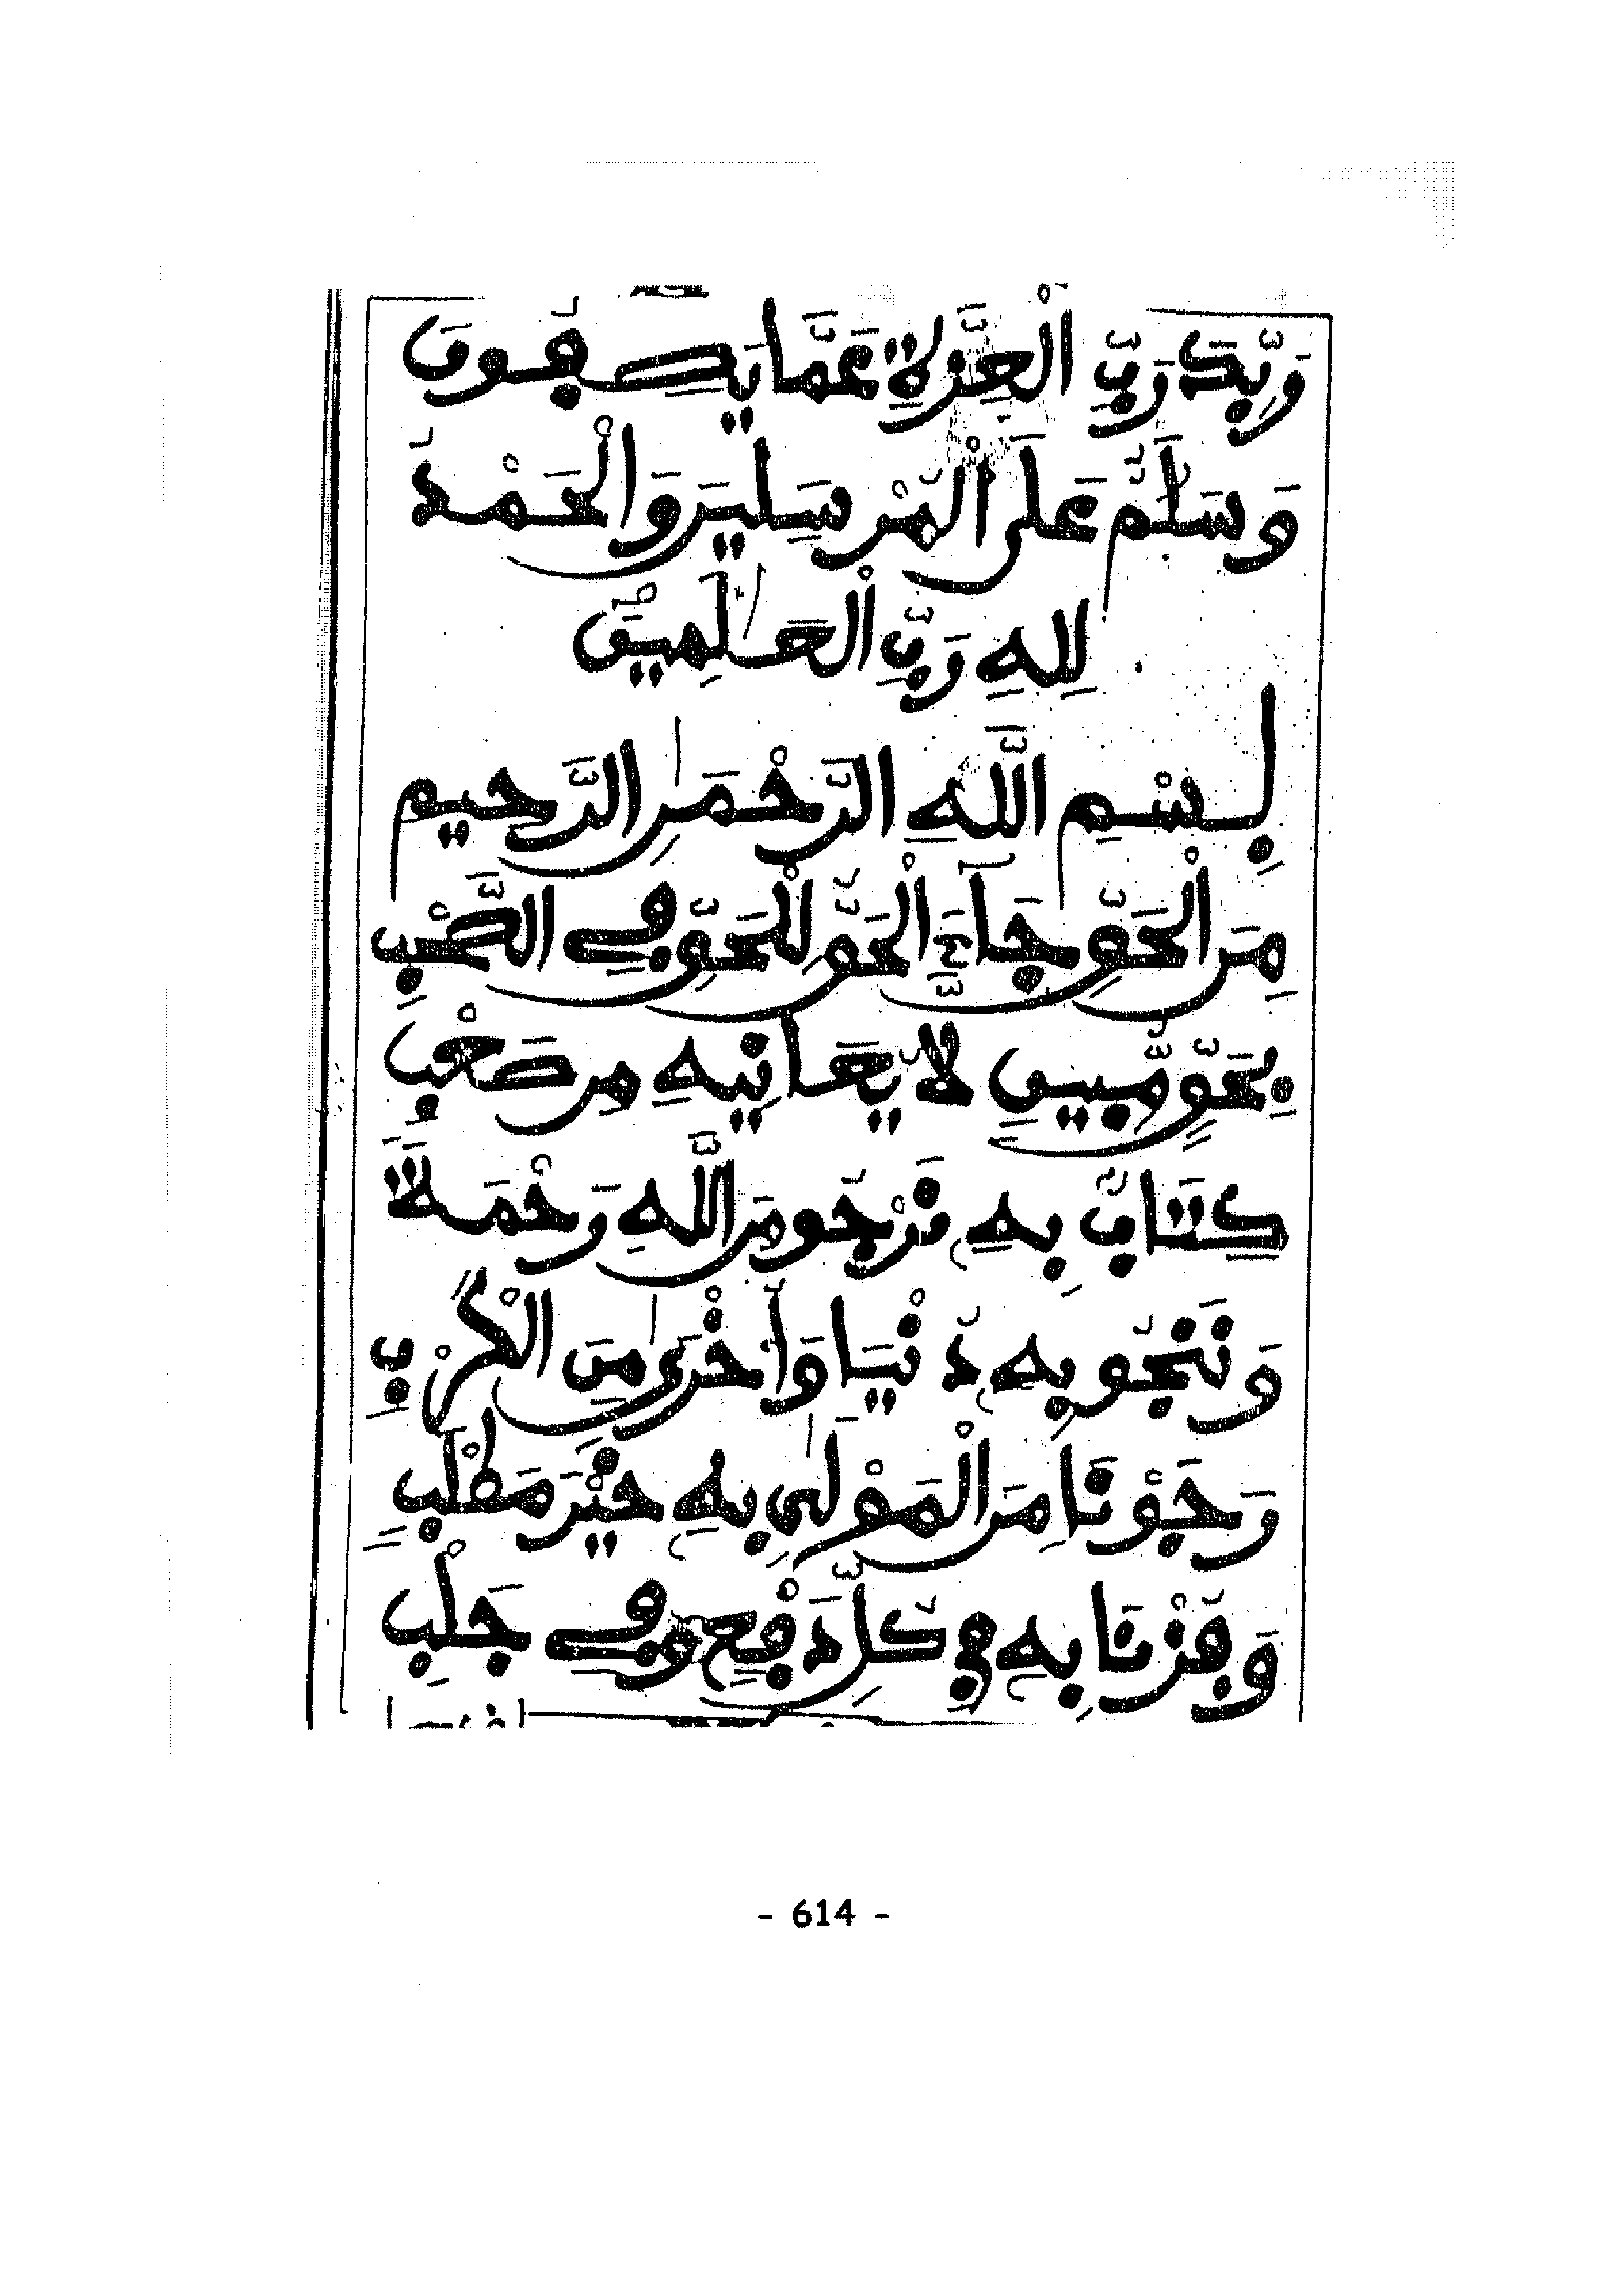 رَبِّكَ رَبِّ الْعِزَّةِ عَمَّا يَصِفُونَ
وَسَلَٰمٌ عَلَى الْمُرْسَلِينَ وَالْحَمْدُ
لِلهِ رَبِّ الْعَٰلَمِينَ
بِسْمِ اللَّهِ الرَّحْمَٰنِ الرَّحِيمِ
مِنَ الْحَقِّ جَآءَ الْحَقُّ لِلْحَقِّ فِي الْكُتْبِ
بِحَقٍّ مُّبِينٍ لَا يُعَانِيهِ مِن صَعْبِ
كِتَابٌ بِهِ نَرْجُو مِنَ اللَّهِ رَحْمَةً
وَنَنْجُو بِهِ دُنْيَا وَأُخْرَىٰ مِنَ الْكَرْبِ
رَجَوْنَا مِنَ الْمَوْلَىٰ بِهِ خَيْرَ مَطْلَبٍ
وَفُزْنَا بِهِ فِي كُلِّ دَفْعٍ وَفِي جَلْبِ
- 614 -